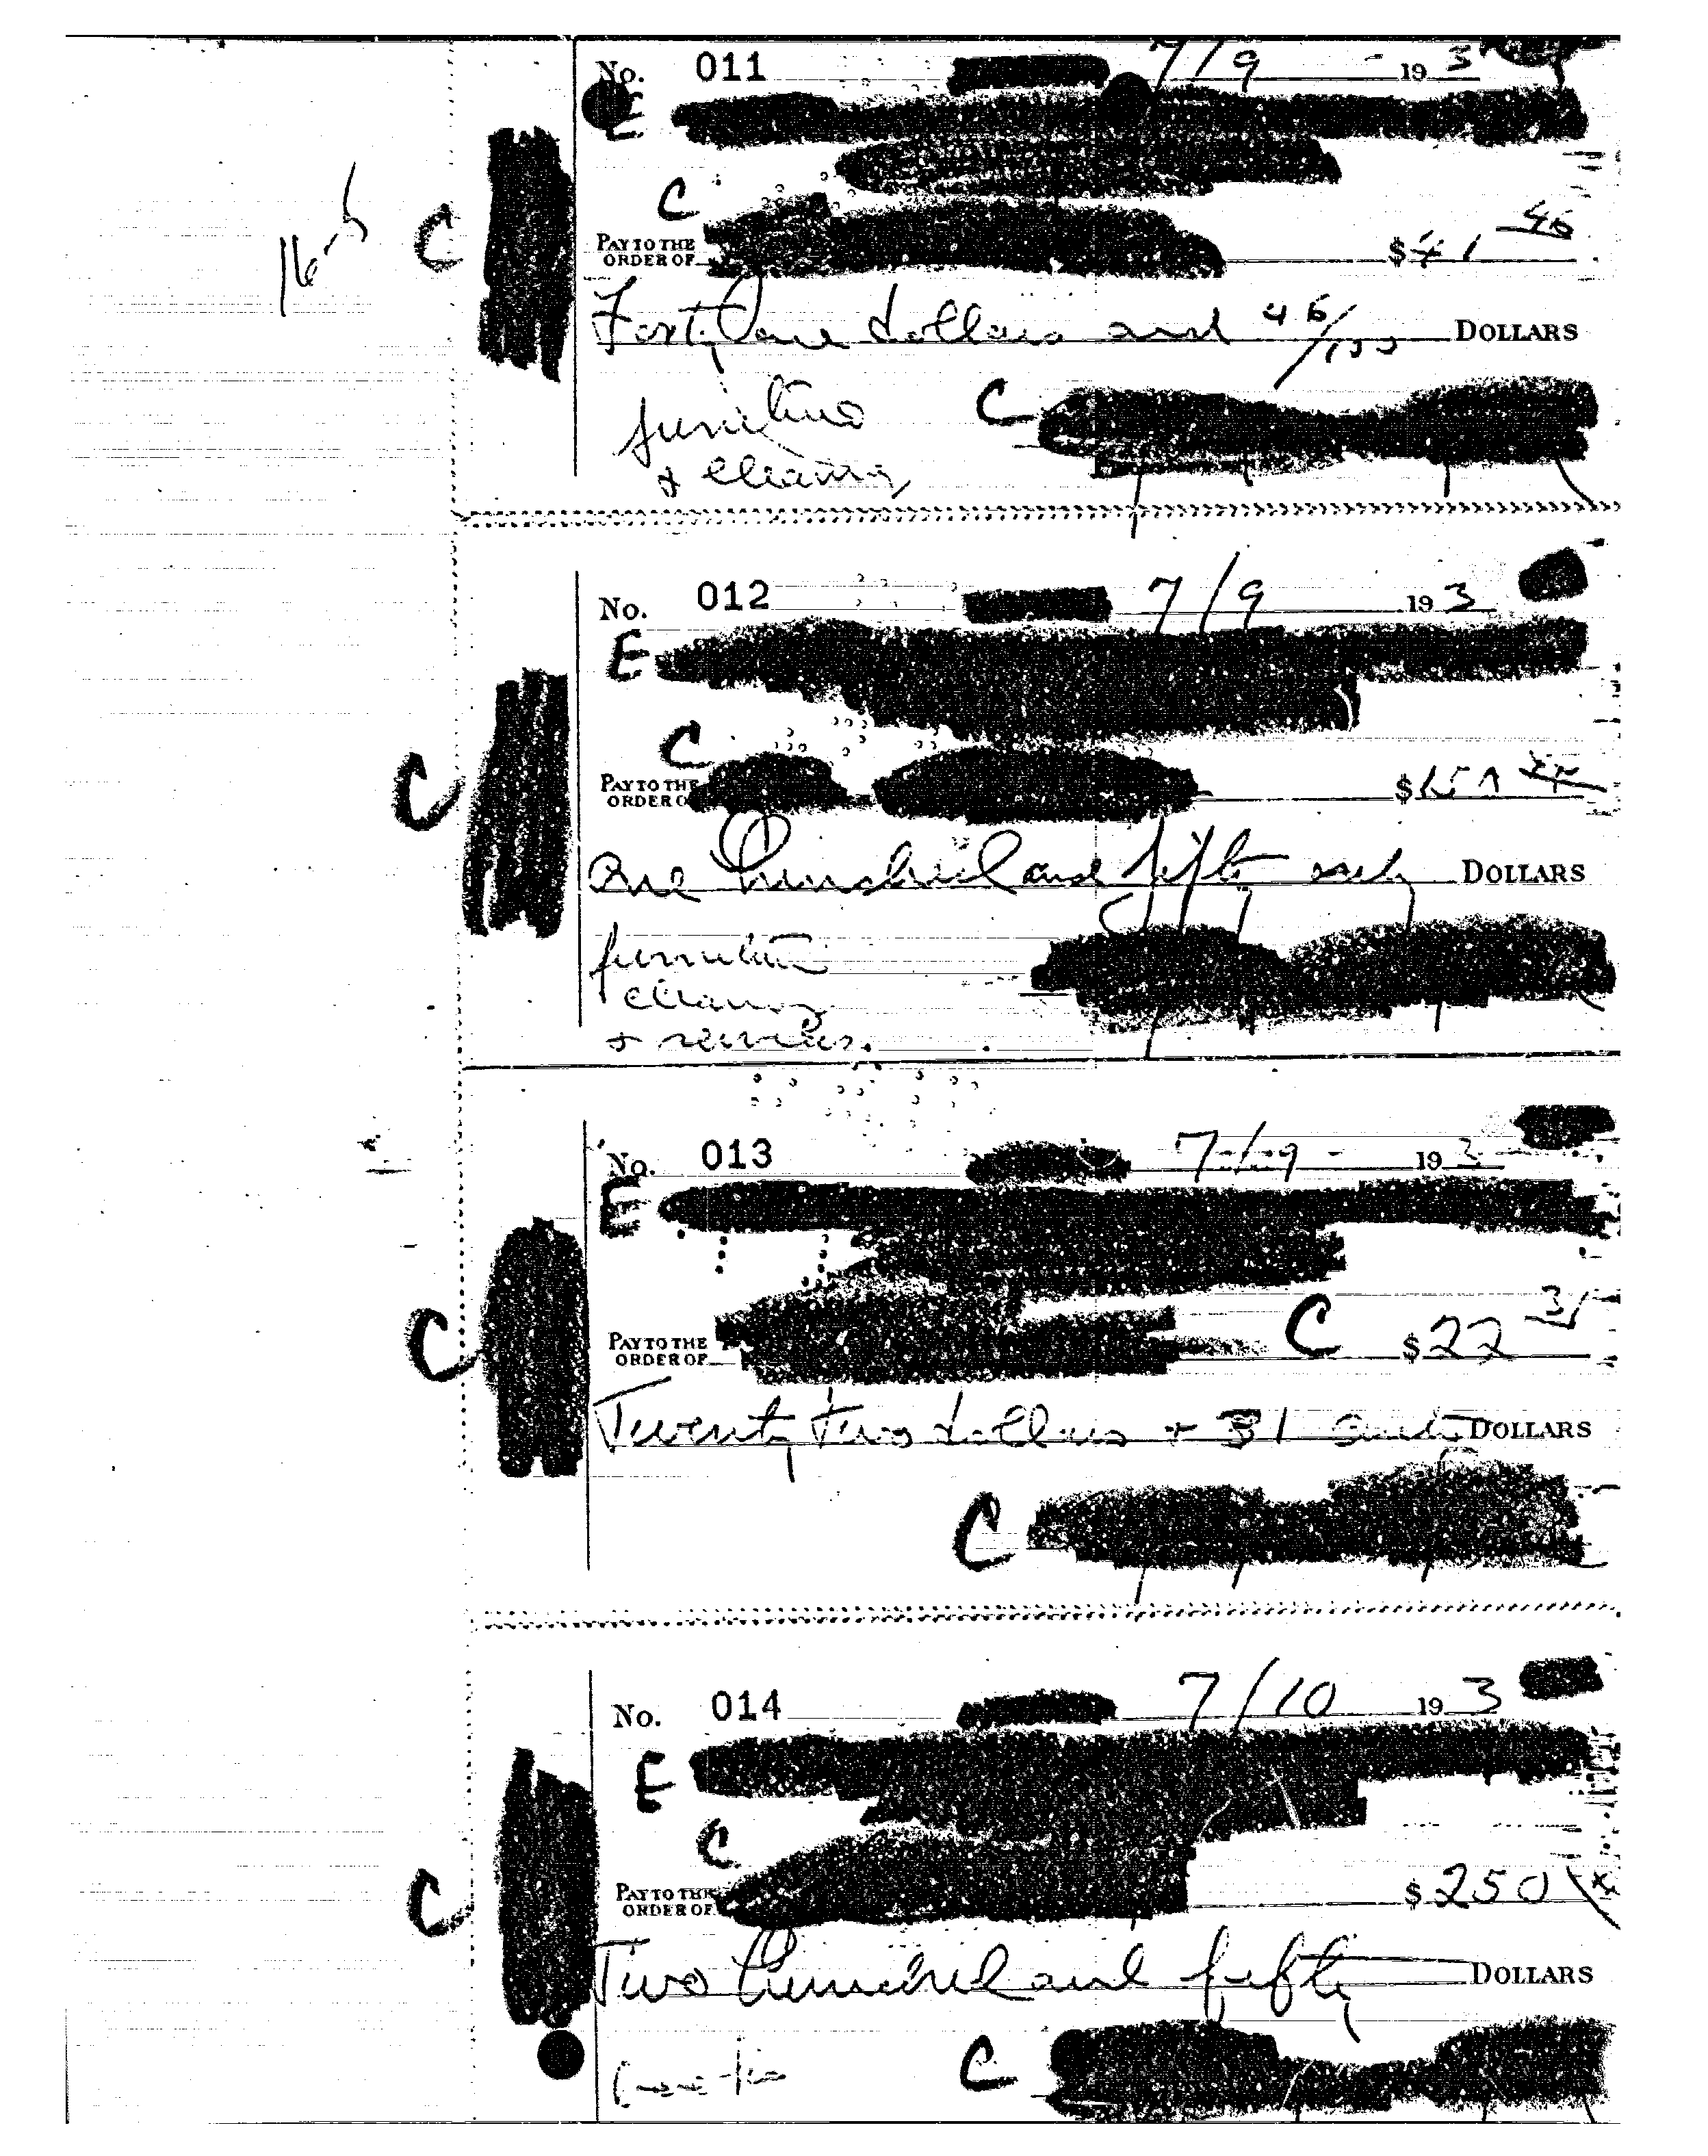 No. 011 7/9 - 19 3
E
C
16-5
C
PAY TO THE
ORDER OF $41 46
Forty one dollars and 46/100 DOLLARS
furniture C
& cleaning
No. 012 7/9 19 3
E
C
C
PAY TO THE
ORDER OF $150 xx
One hundred and fifty only DOLLARS
furniture
cleaning
& services.
No. 013 7-/-9 - 19 3
E
C
PAY TO THE C
ORDER OF $22 31
Twenty two dollars + 31 cents DOLLARS
C
No. 014 7/10 19 3
E
C
C
PAY TO THE
ORDER OF $250 xx
Two hundred and fifty DOLLARS
C